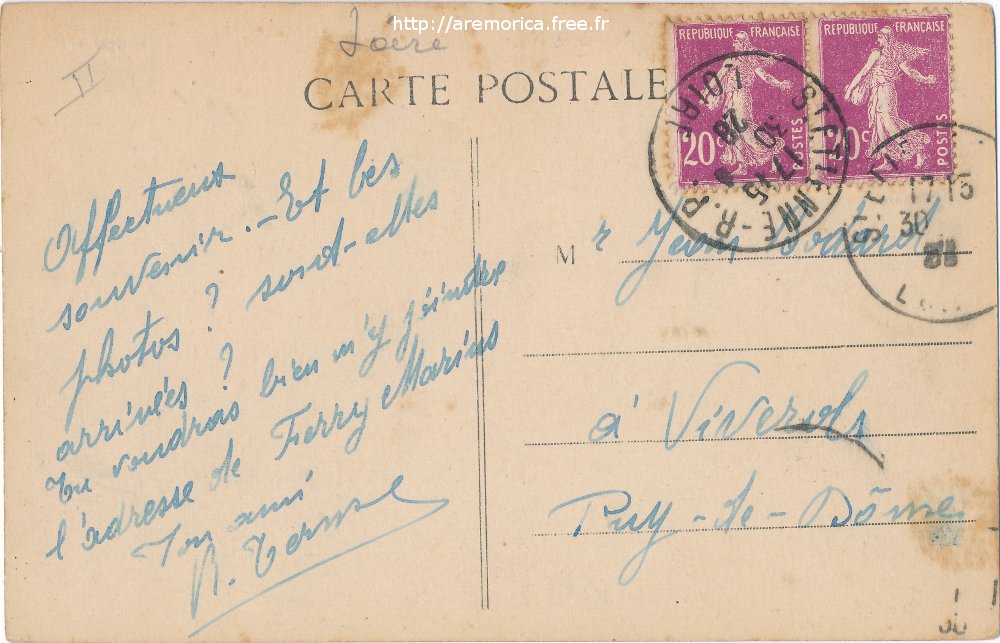 http://aremorica.free.fr
Loire
II
CARTE POSTALE
REPUBLIQUE FRANÇAISE
20c
POSTES
REPUBLIQUE FRANÇAISE
20c
POSTES
ST ETIENNE - R.P.
LOIRE
17 15
30
28
17 15
30
Affectueux
souvenir. - Et les
photos ? sont-elles
arrivées ?
Tu voudras bien m'y joindre
l'adresse de Ferry Marius
Ton ami
R.
Mr Jean
à Viverols
Puy-de-Dôme